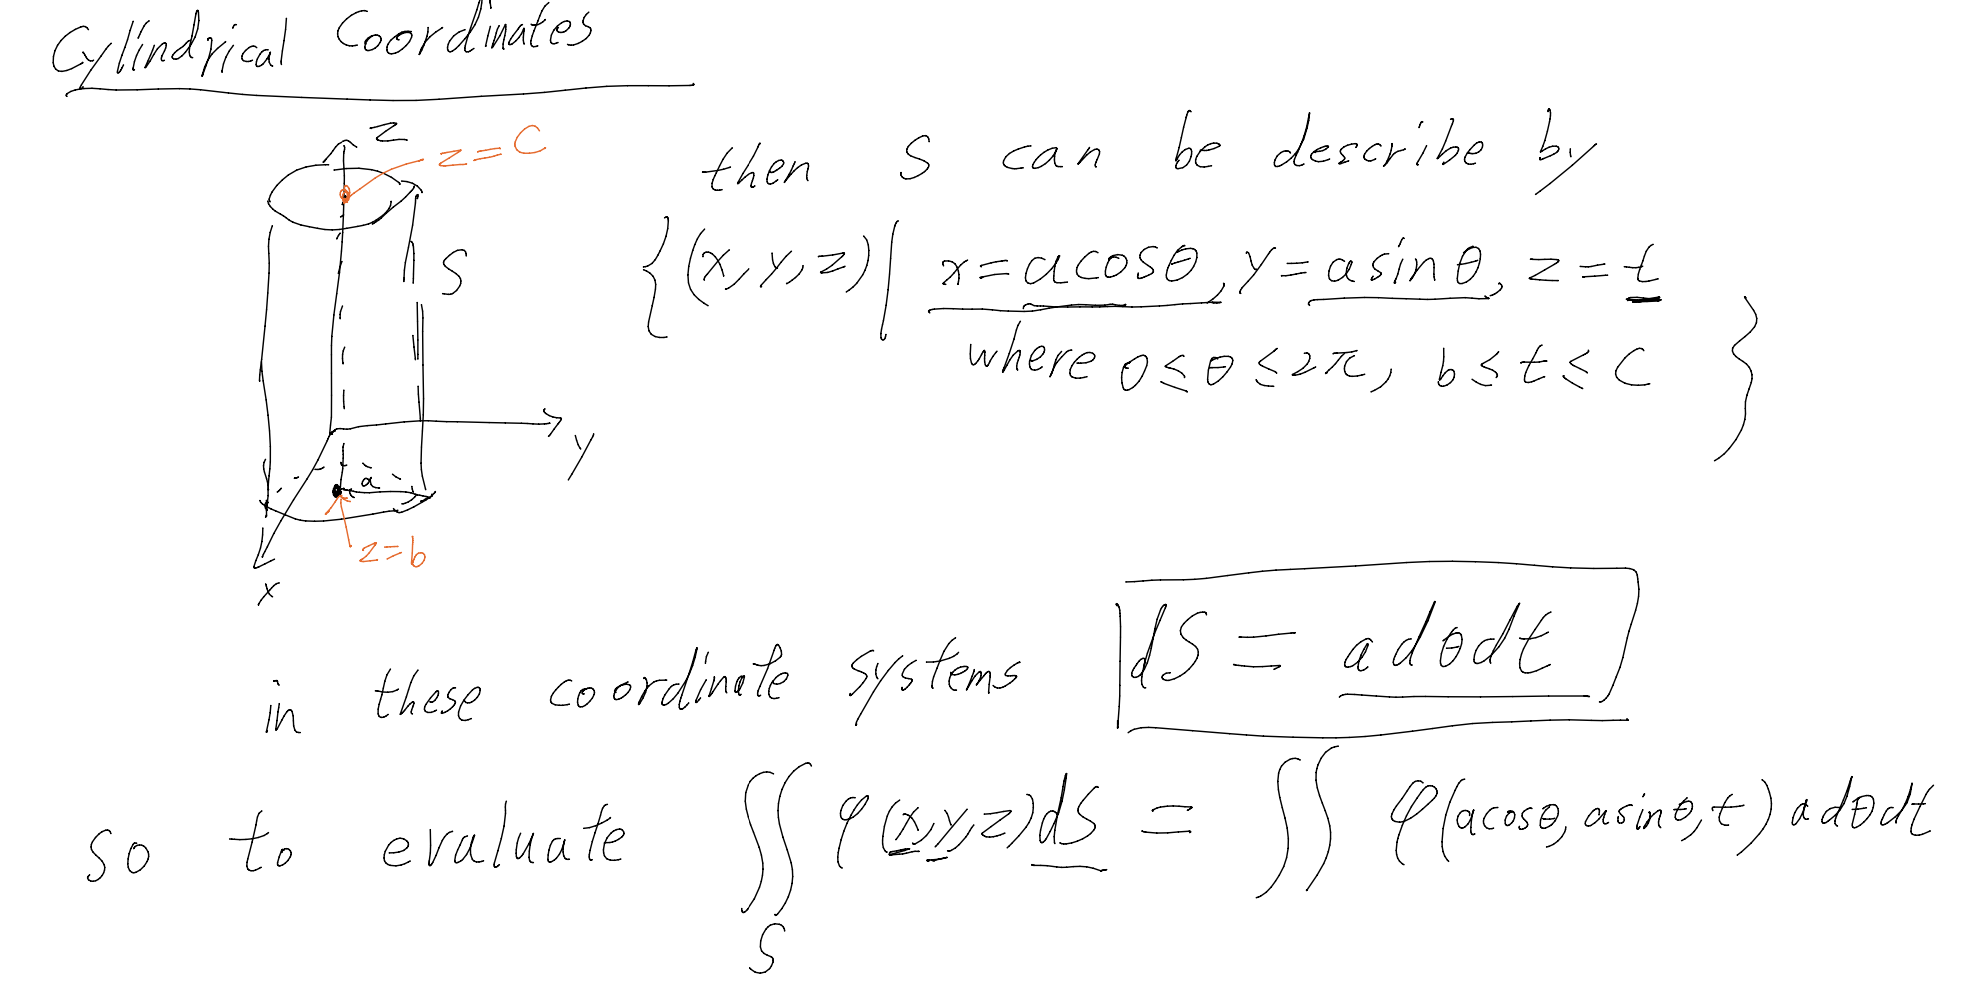 Cylindrical Coordinates
z
z=C
then S can be describe by
{(x,y,z)| x=acosθ, y=asinθ, z=t
S
where 0≤θ≤2π, b≤t≤C }
y
a
z=b
x
in these coordinate systems dS = adθdt
so to evaluate ∬ φ(x,y,z)dS = ∬ φ(acosθ, asinθ, t) adθdt
S